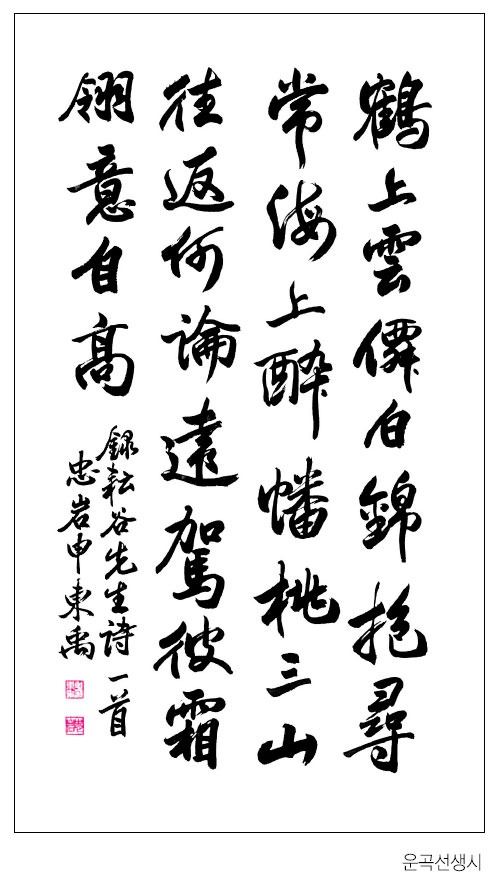 鶴上雲僊白錦抱尋
常海上醉幡桃三山
往返何論遠駕彼霜
翎意自髙
録耘谷先生詩一首
忠岩申東禹
운곡선생시